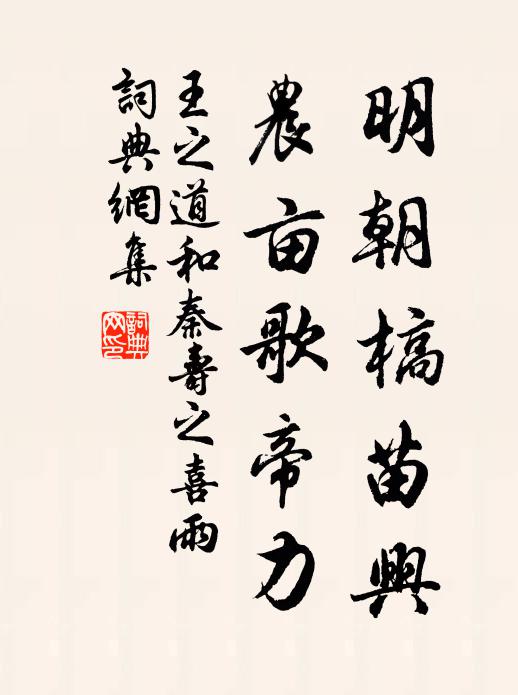 明朝槁苗興
農亩歌帝力
王之道和秦壽之喜雨
詞典網集
詞典网印